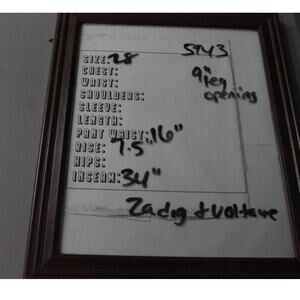 5743
SIZE: 28
CHEST:
WAIST:
SHOULDERS:
SLEEVE:
LENGTH:
PANT WAIST: 16"
RISE: 7.5"
HIPS:
INSEAM: 34"
9" leg
opening
Zadig + Voltaire